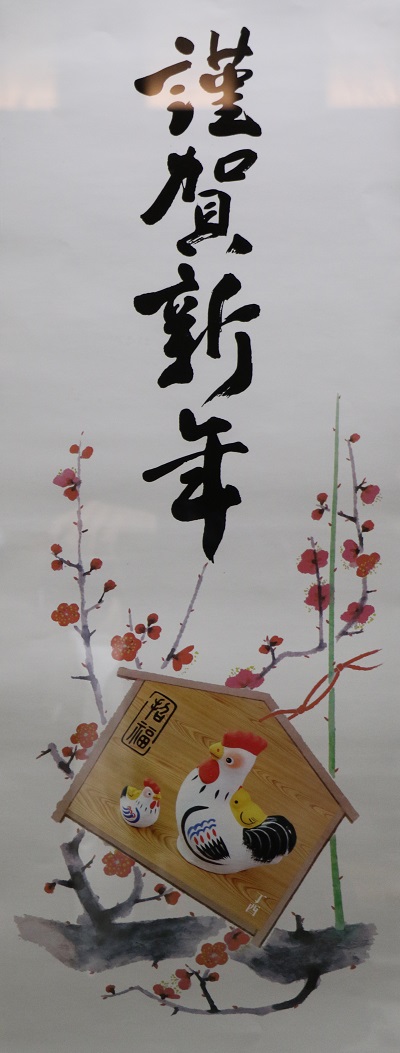 謹賀新年
招福
丁酉